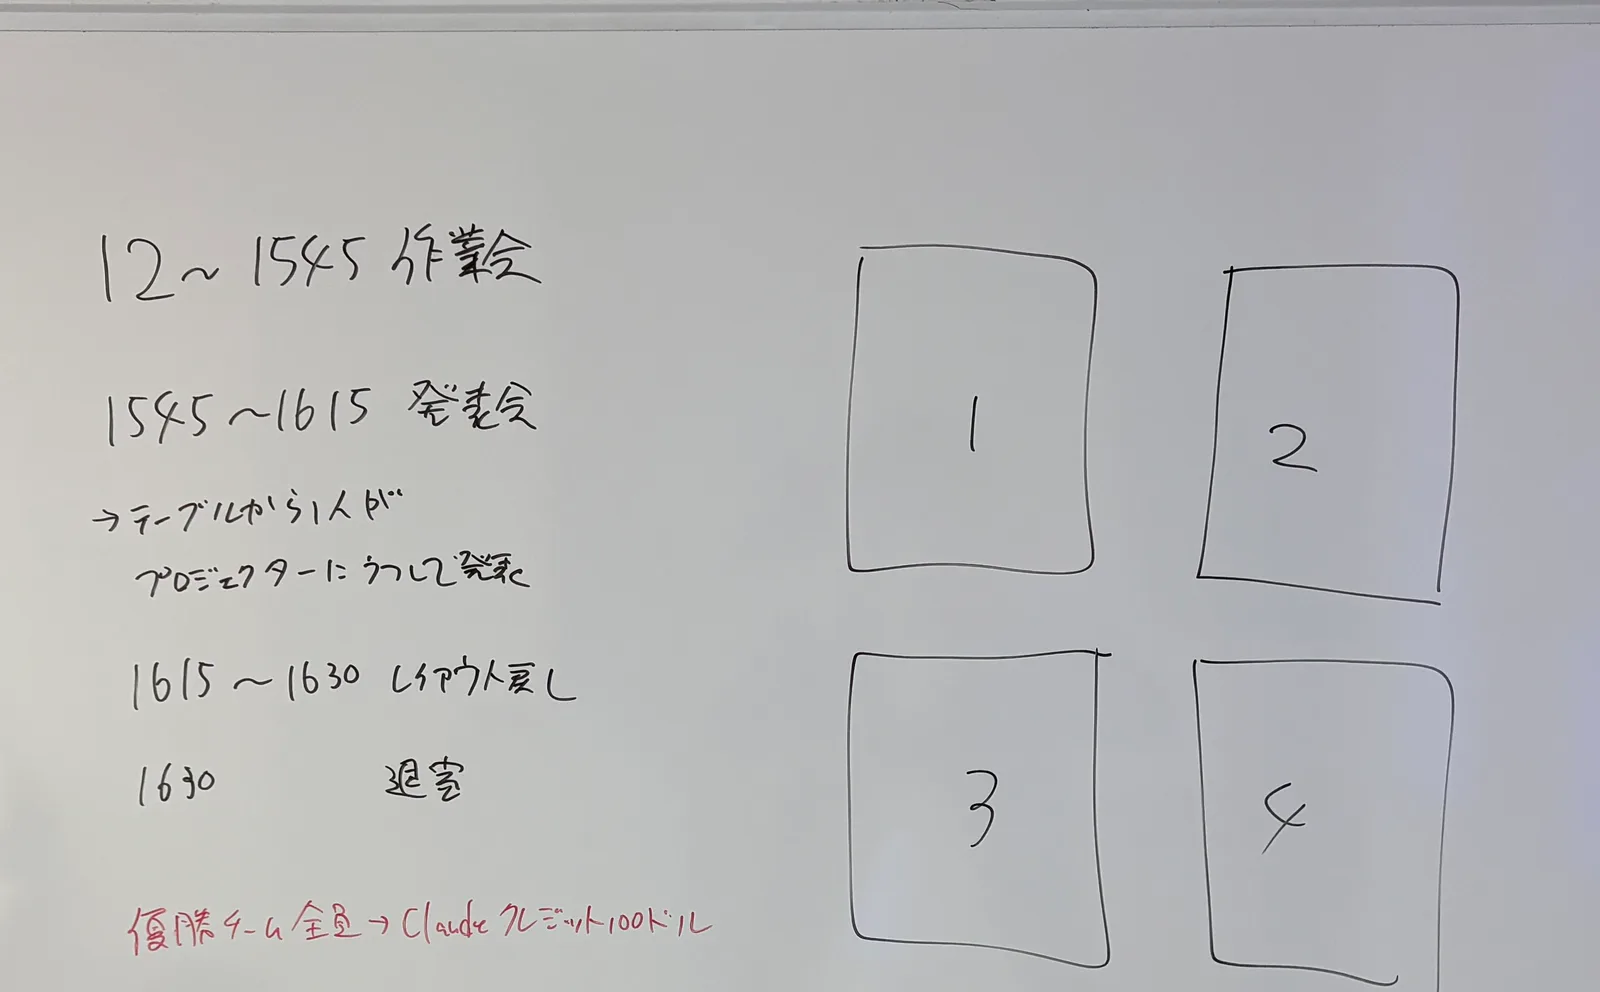 12～1545 作業会
1545～1615 発表会
→テーブルから1人が
プロジェクターにうつして発表
1615～1630 レイアウト戻し
1630 退室
優勝チーム全員→Claudeクレジット100ドル
1
2
3
4